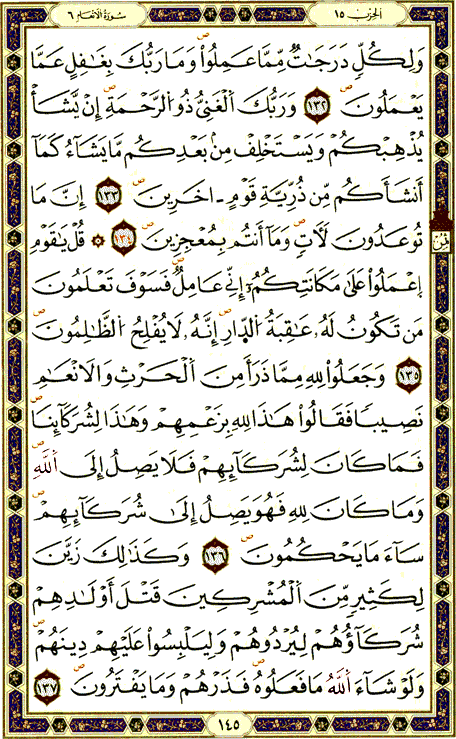 الحزب ١٥
سُورَةُ الأَنْعَام ٦
وَلِكُلّٖ دَرَجَٰتٞ مِّمَّا عَمِلُواْ وَمَا رَبُّكَ بِغَٰفِلٍ عَمَّا
يَعْمَلُونَ ١٣٢ وَرَبُّكَ اَلْغَنِيُّ ذُو اُلرَّحْمَةِ إِنْ يَّشَأْ
يُذْهِبْكُمْ وَيَسْتَخْلِفْ مِنۢ بَعْدِكُم مَّا يَشَآءُ كَمَآ
أَنشَأَكُم مِّن ذُرِّيَّةِ قَوْمٍ ـ اخَرِينَ ١٣٣ إِنَّ مَا
تُوعَدُونَ لَأٓتٖ وَمَآ أَنتُم بِمُعْجِزِينَ ١٣٤ ۞ قُلْ يَٰقَوْمِ
اِعْمَلُواْ عَلَىٰ مَكَانَتِكُمُۥٓ إِنِّے عَامِلٞ فَسَوْفَ تَعْلَمُونَ
ثمن
مَن تَكُونُ لَهُۥ عَٰقِبَةُ اُلدّ۪ارِ إِنَّهُۥ لَا يُفْلِحُ اُلظَّٰلِمُونَ
١٣٥ وَجَعَلُواْ لِلهِ مِمَّا ذَرَأَ مِنَ اَلْحَرْثِ وَالَانْعَٰمِ
نَصِيباٗ فَقَالُواْ هَٰذَا لِلهِ بِزَعْمِهِمْ وَهَٰذَا لِشُرَكَآئِنَا
فَمَا كَانَ لِشُرَكَآئِهِمْ فَلَا يَصِلُ إِلَى اَللَّهِ
وَمَا كَانَ لِلهِ فَهُوَ يَصِلُ إِلَىٰ شُرَكَآئِهِمْ
سَآءَ مَا يَحْكُمُونَ ١٣٦ وَكَذَٰلِكَ زَيَّنَ
لِكَثِيرٖ مِّنَ اَلْمُشْرِكِينَ قَتْلَ أَوْلَٰدِهِمْ
شُرَكَآؤُهُمْ لِيُرْدُوهُمْ وَلِيَلْبِسُواْ عَلَيْهِمْ دِينَهُمْ
وَلَوْ شَآءَ اَللَّهُ مَا فَعَلُوهُ فَذَرْهُمْ وَمَا يَفْتَرُونَ ١٣٧
١٤٥